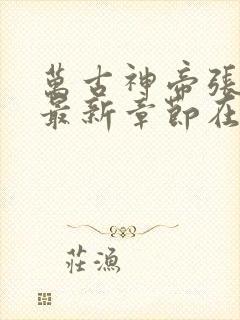 萬古神帝張
最新章節在
莊漁